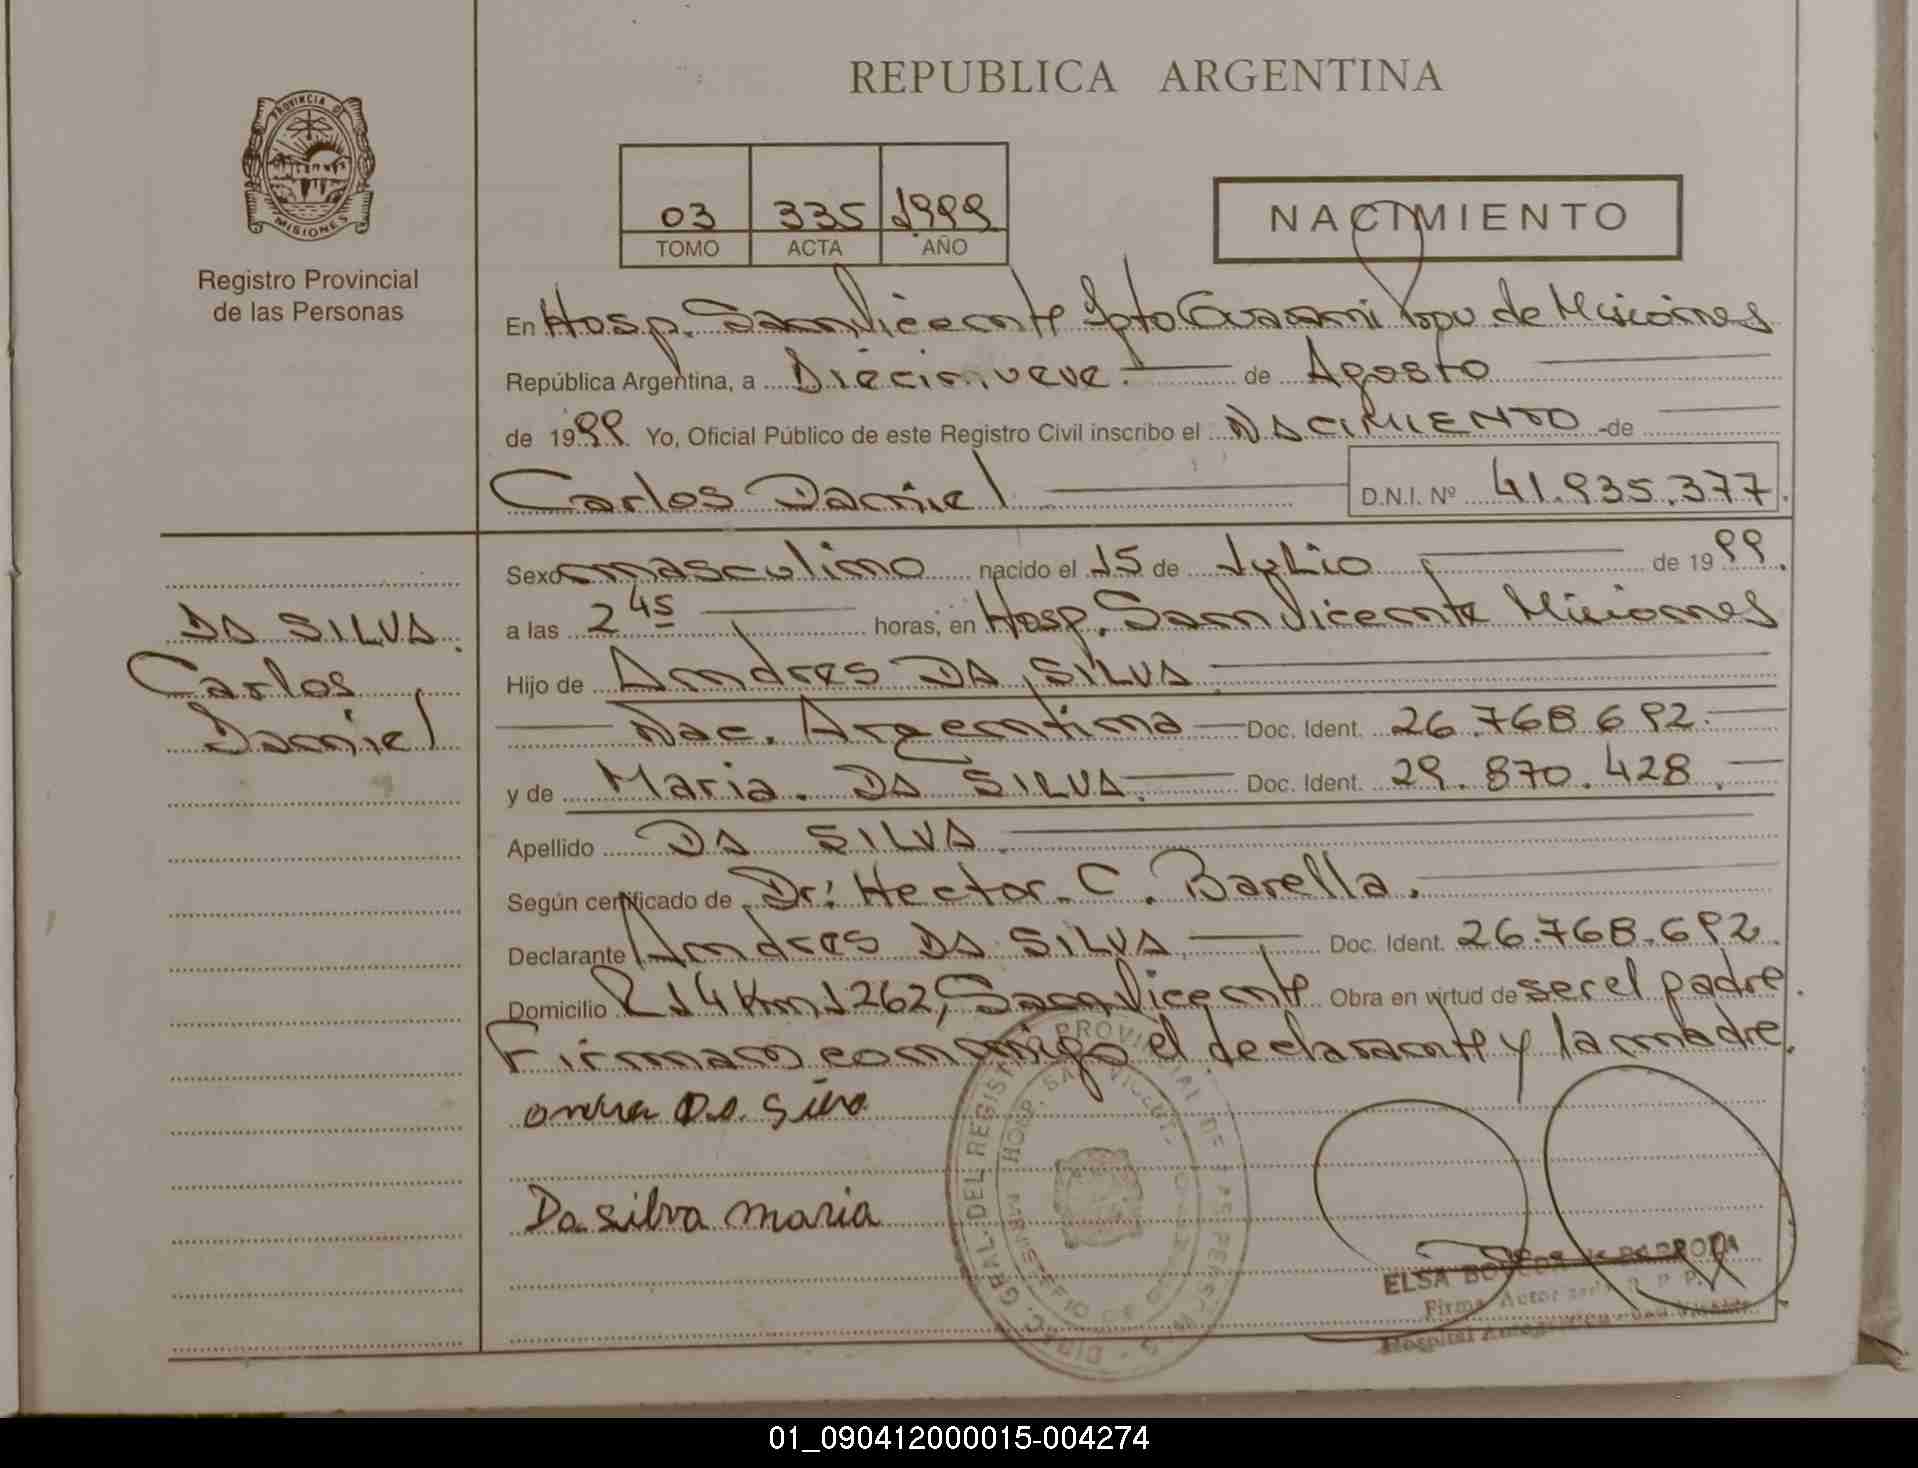 REPUBLICA ARGENTINA
PROVINCIA DE MISIONES
Registro Provincial
de las Personas
03 335 1999
TOMO ACTA AÑO
NACIMIENTO
En Hosp. San Vicente Dpto Guarani Prov. de Misiones
República Argentina, a Diecinueve. de Agosto
de 1999 Yo, Oficial Público de este Registro Civil inscribo el NACIMIENTO -de
Carlos Daniel D.N.I. Nº 41.935.377
DA SILVA.
Carlos
Daniel
Sexo masculino nacido el 15 de Julio de 1999.
a las 2 45 horas, en Hosp. San Vicente Misiones
Hijo de Andres DA SILVA
Nac. Argentina Doc. Ident. 26.768.692.
y de Maria. DA SILVA. Doc. Ident. 29.870.428.
Apellido DA SILVA.
Según certificado de Dr: Hector. C. Barella.
Declarante Andres DA SILVA Doc. Ident. 26.768.692
Domicilio R14 Km 1262, San Vicente Obra en virtud de ser el padre.
Firman conmigo el declarante y la madre.
Da Silva
Da silva maria
DIREC. GRAL. DEL REGISTRO PROVINCIAL DE LAS PERSONAS
HOSP. SAN VICENTE
ELSA
Firma
Hospital
01_090412000015-004274